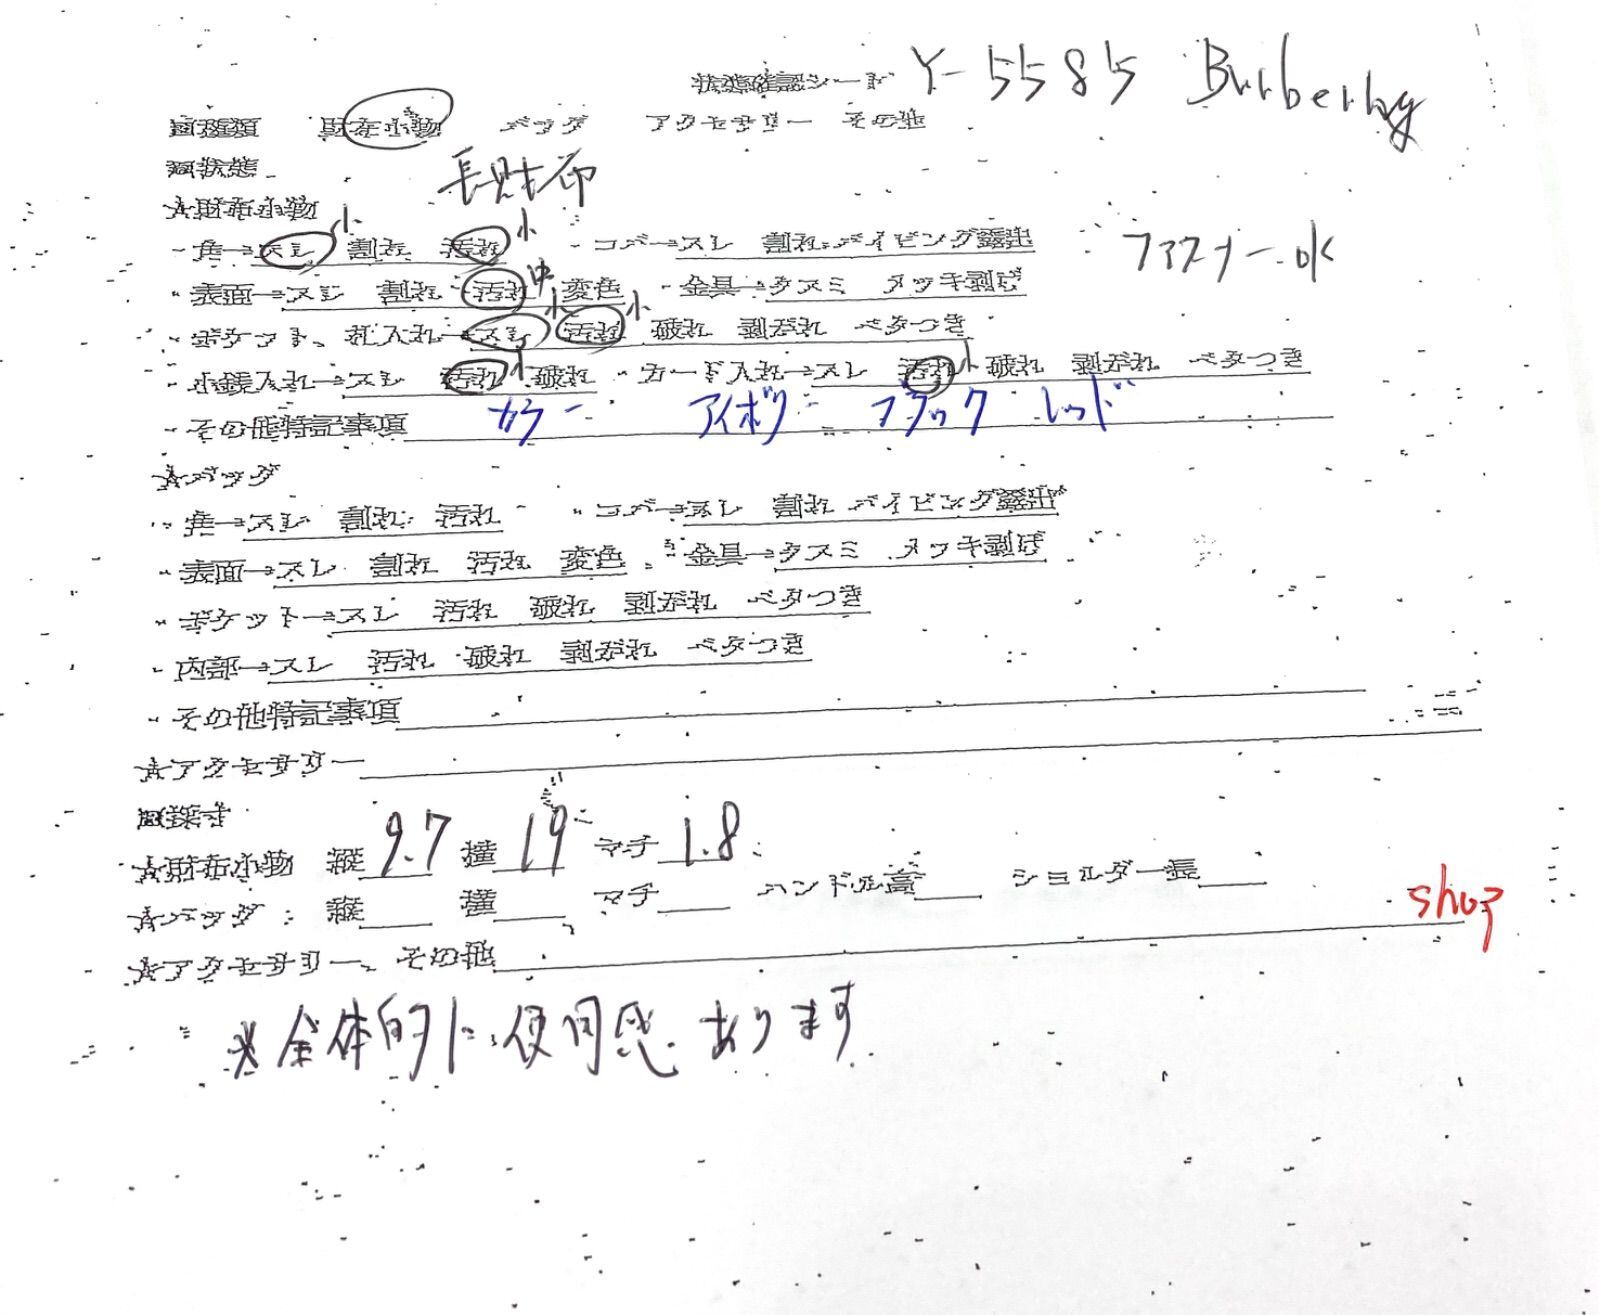 状態確認シート Y-5585 Burberry
□種類 財布小物 バッグ アクセサリー その他
□状態 長財布
☆財布小物
・角→スレ小 割れ 汚れ小 ・コバ→スレ 割れ パイピング露出 ファスナーok
・表面→スレ 割れ 汚れ中 変色 ・金具→クスミ メッキ剥げ
・ポケット、札入れ→スレ小 汚れ小 破れ 剥がれ ベタつき
・小銭入れ→スレ 汚れ小 破れ ・カード入れ→スレ 汚れ小 破れ 剥がれ ベタつき
・その他特記事項 カラー アイボリー ブラック レッド
☆バッグ
・角→スレ 割れ 汚れ ・コバ→スレ 割れ パイピング露出
・表面→スレ 割れ 汚れ 変色 ・金具→クスミ メッキ剥げ
・ポケット→スレ 汚れ 破れ 剥がれ ベタつき
・内部→スレ 汚れ 破れ 剥がれ ベタつき
・その他特記事項
☆アクセサリー
□採寸
☆財布小物 縦 9.7 横 19 マチ 1.8
☆バッグ：縦 横 マチ ハンドル高 ショルダー長
shop
☆アクセサリー、その他
※全体的に使用感あります